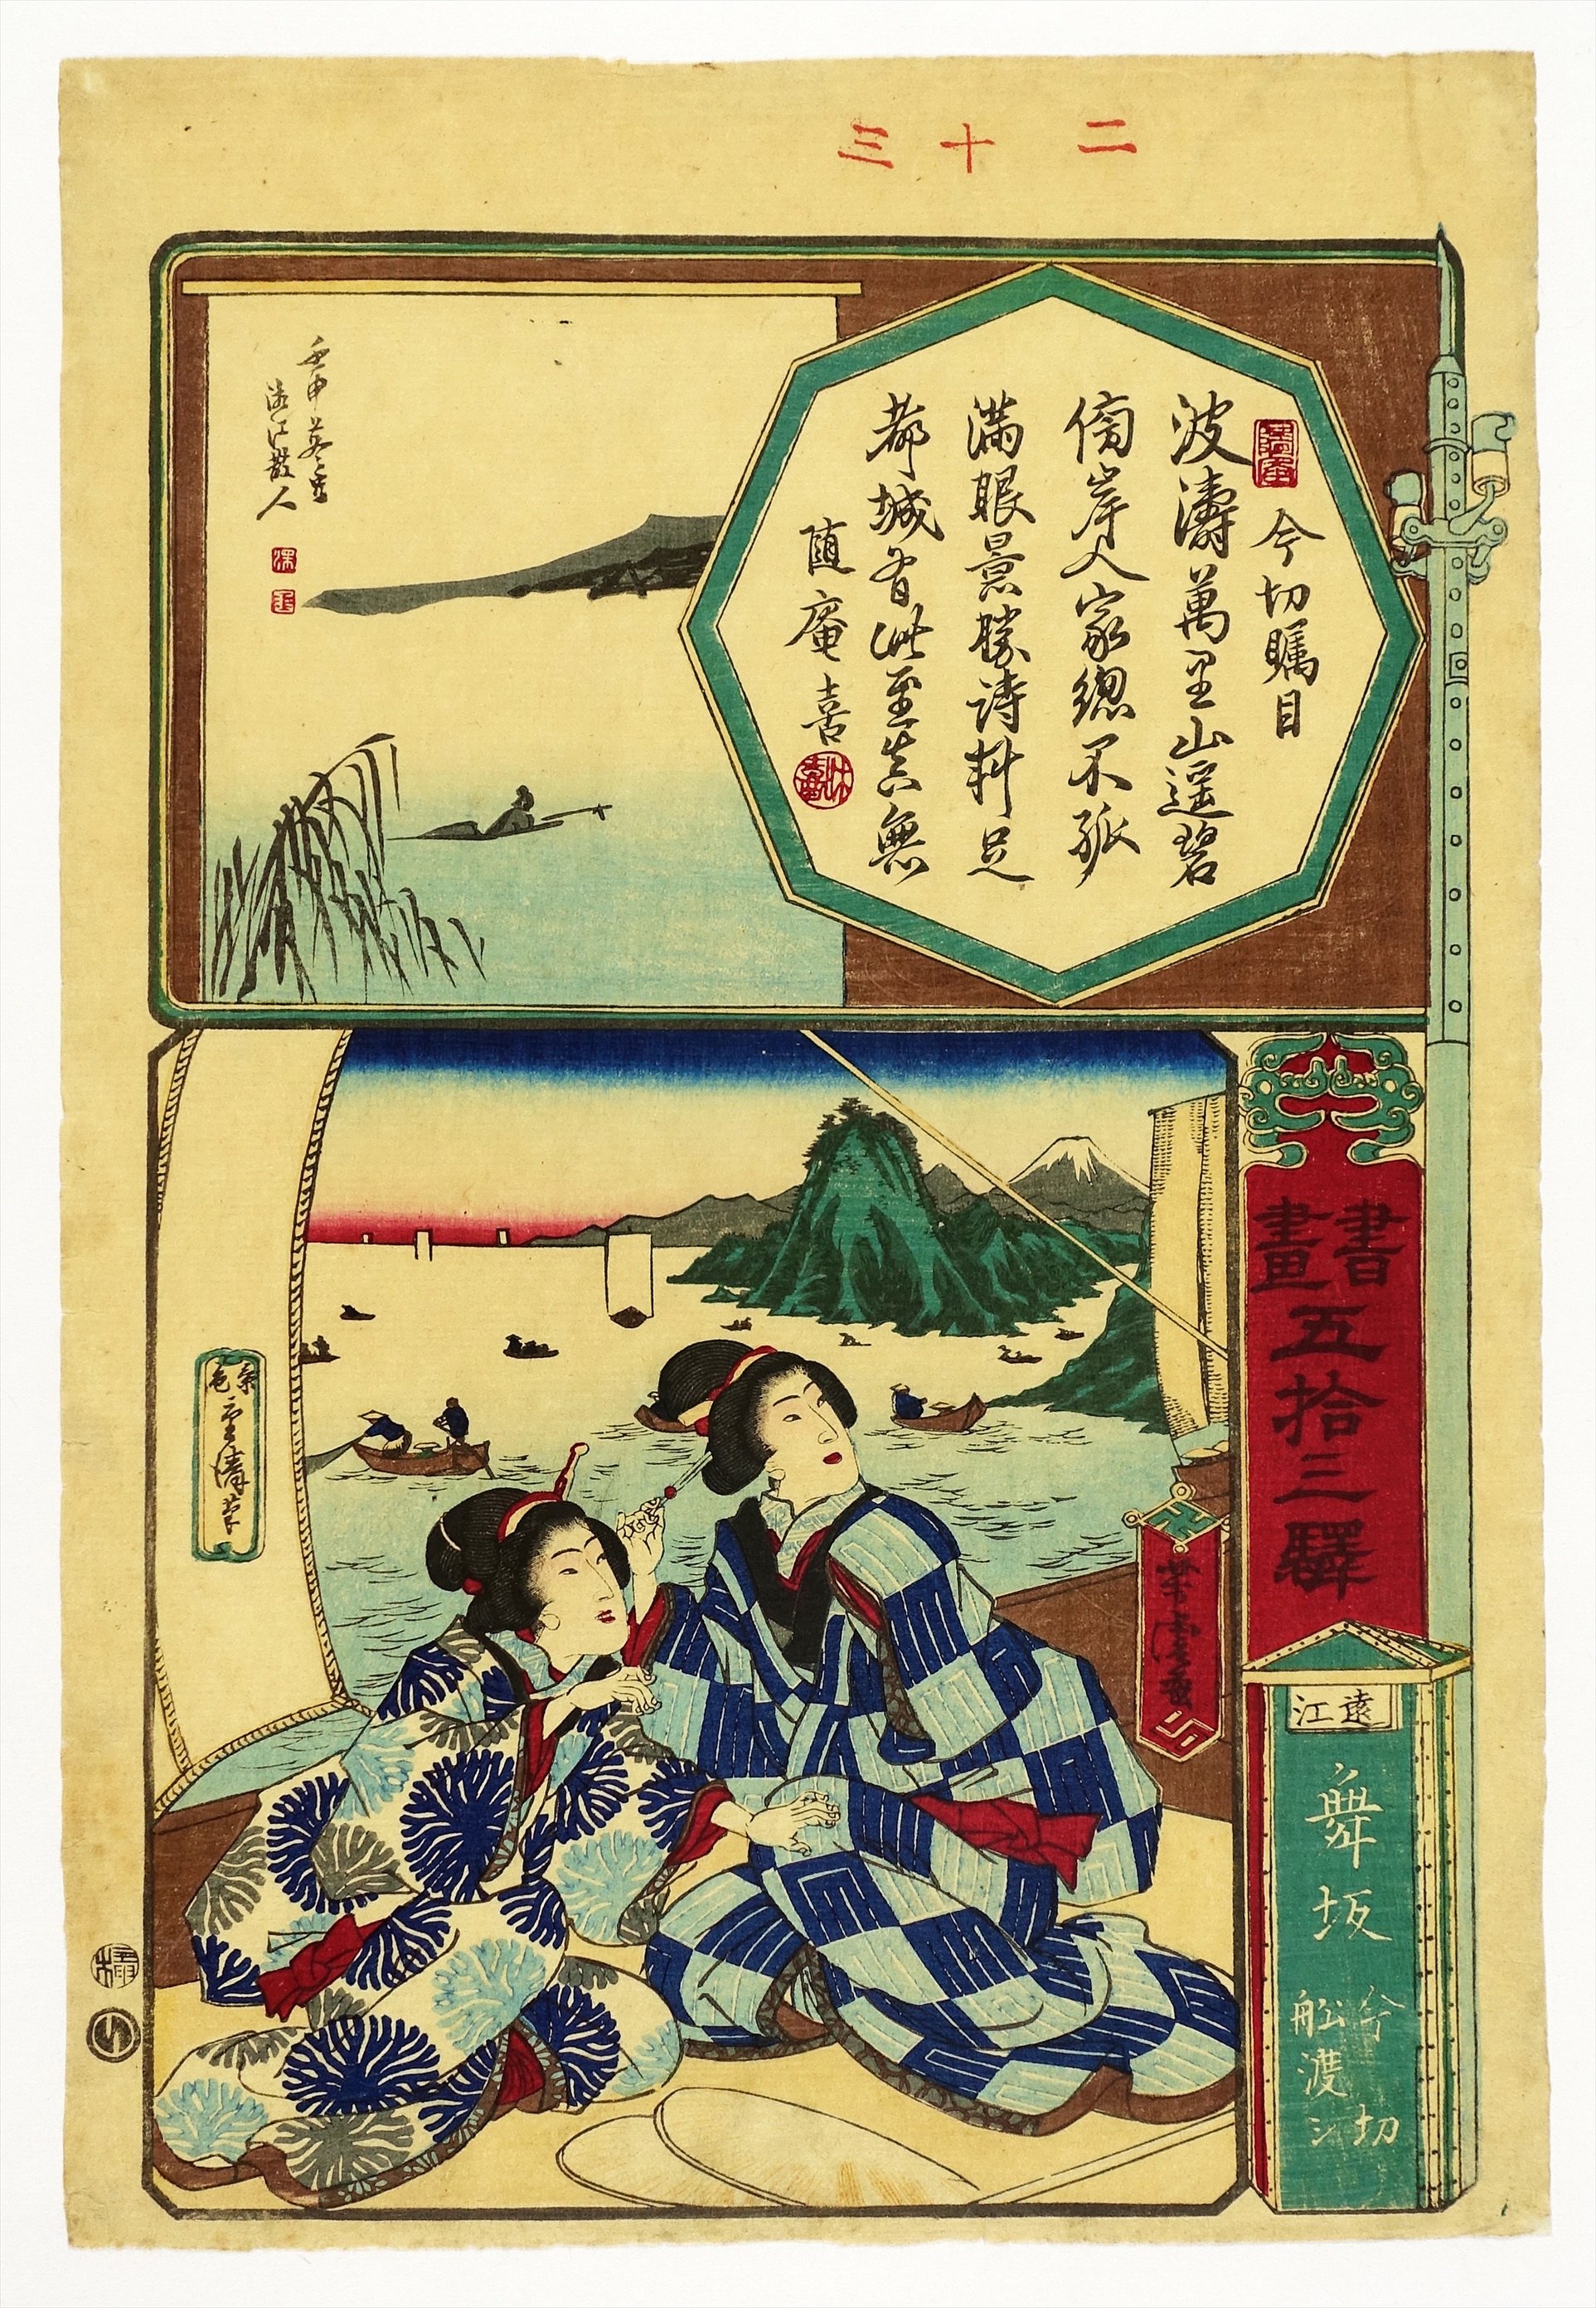 二十三
今切矚目
波濤萬里山遥碧
傍岸人家總不孤
滿眼景勝詩料足
都城有此至真無
随庵喜
壬申
遠江散人
書畫五拾三驛
遠江
舞坂
今切
舩渡シ
芳虎画
重清筆